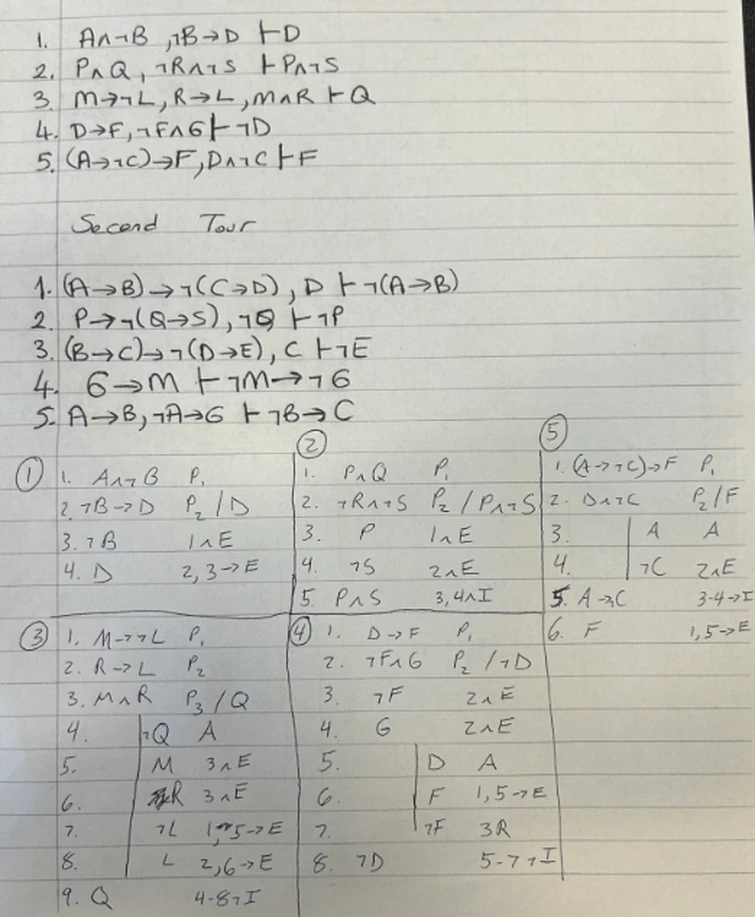 1. A∧¬B, ¬B→D ⊢D
2. P∧Q, ¬R∧¬S ⊢P∧¬S
3. M→¬L, R→L, M∧R ⊢Q
4. D→F, ¬F∧G⊢¬D
5. (A→¬C)→F, D∧¬C⊢F
Second Tour
1. (A→B)→¬(C→D), D ⊢¬(A→B)
2. P→¬(Q→S), ¬Q ⊢¬P
3. (B→C)→¬(D→E), C ⊢¬E
4. G→M ⊢¬M→¬G
5. A→B, ¬A→G ⊢¬B→C
①
1. A∧¬B P₁
2. ¬B→D P₂/D
3. ¬B 1∧E
4. D 2,3→E
②
1. P∧Q P₁
2. ¬R∧¬S P₂/P∧¬S
3. P 1∧E
4. ¬S 2∧E
5. P∧S 3,4∧I
⑤
1. (A→¬C)→F P₁
2. D∧¬C P₂/F
3. A A
4. ¬C 2∧E
5. A→¬C 3-4→I
6. F 1,5→E
③
1. M→¬L P₁
2. R→L P₂
3. M∧R P₃/Q
4. ¬Q A
5. M 3∧E
6. R 3∧E
7. ¬L 1,5→E
8. L 2,6→E
9. Q 4-8¬I
④
1. D→F P₁
2. ¬F∧G P₂/¬D
3. ¬F 2∧E
4. G 2∧E
5. D A
6. F 1,5→E
7. ¬F 3R
8. ¬D 5-7¬I